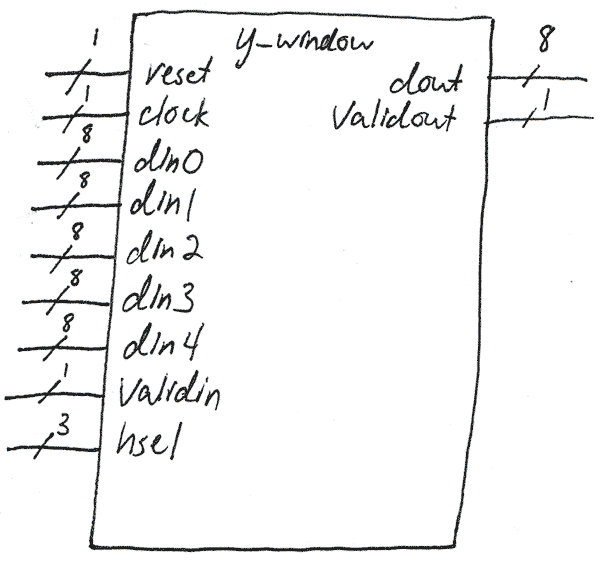 y_window
1
reset
1
clock
8
din0
8
din1
8
din2
8
din3
8
din4
1
validin
3
hsel
8
dout
1
validout